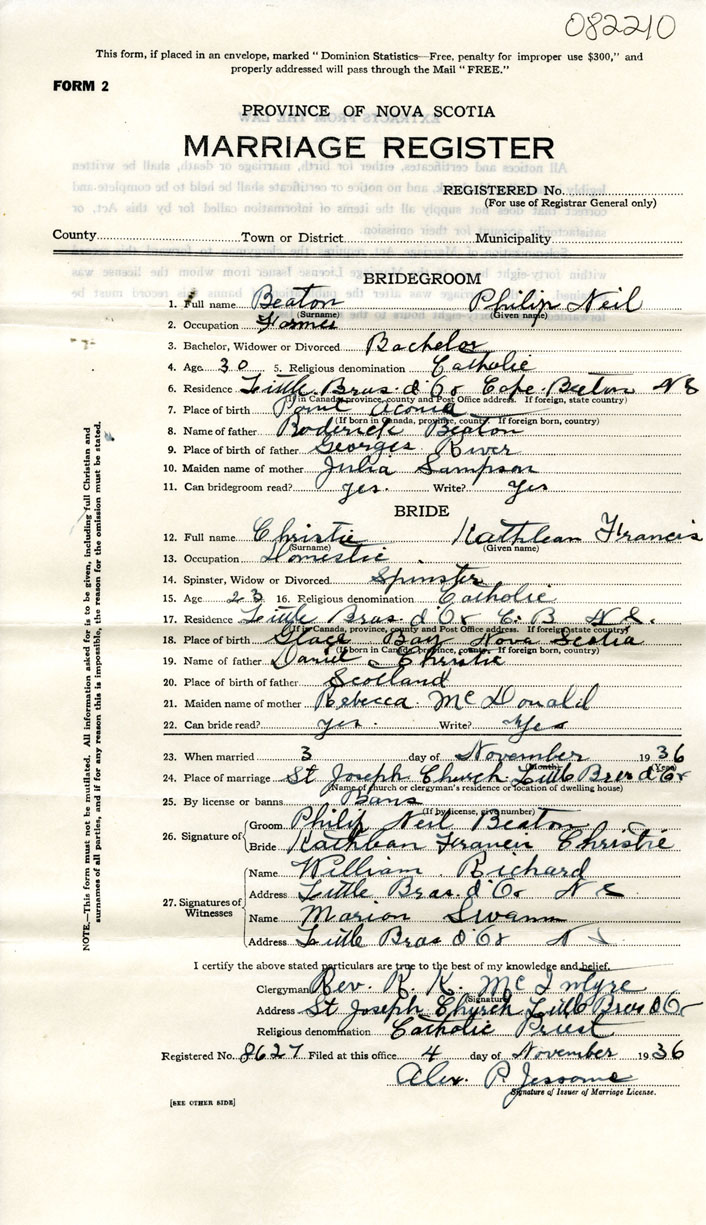 082210
This form, if placed in an envelope, marked "Dominion Statistics—Free, penalty for improper use $300," and
properly addressed will pass through the Mail "FREE."
FORM 2
PROVINCE OF NOVA SCOTIA
MARRIAGE REGISTER
REGISTERED No.
(For use of Registrar General only)
County Town or District Municipality
BRIDEGROOM
1. Full name Beaton Philip Neil
(Surname) (Given name)
2. Occupation Farmer
3. Bachelor, Widower or Divorced Bachelor
4. Age 30 5. Religious denomination Catholic
6. Residence Little Bras d'Or Cape Breton NS
(If in Canada, province, county and Post Office address. If foreign, state country)
7. Place of birth Point Aconia
(If born in Canada, province, county. If foreign born, country)
8. Name of father Roderick Beaton
9. Place of birth of father Georges River
10. Maiden name of mother Julia Sampson
11. Can bridegroom read? yes. Write? Yes
BRIDE
12. Full name Christie Kathlean Francis
(Surname) (Given name)
13. Occupation Domestic
14. Spinster, Widow or Divorced Spinster
15. Age 23 16. Religious denomination Catholic
17. Residence Little Bras d'Or C. B N.S.
(If in Canada, province, county and Post Office address. If foreign, state country)
18. Place of birth Glace Bay Nova Scotia
(If born in Canada, province, county. If foreign born, country)
19. Name of father Daniel Christie
20. Place of birth of father Scotland
21. Maiden name of mother Rebecca McDonald
22. Can bride read? yes. Write? Yes
23. When married 3 day of November 1936
(Month) (Year)
24. Place of marriage St Joseph Church Little Bras d'Or
(Name of church or clergyman's residence or location of dwelling house)
25. By license or banns Bans
(If by license, give number)
26. Signature of
Groom Philip Neil Beaton
Bride Kathlean Francis Christie
27. Signatures of Witnesses
Name William Richard
Address Little Bras d'Or N S
Name Marion Swann
Address Little Bras d'Or N S
I certify the above stated particulars are true to the best of my knowledge and belief.
Clergyman Rev. R. K. McIntyre
(Signature)
Address St Joseph Church Little Bras d'Or
Religious denomination Catholic Priest
Registered No. 8627 Filed at this office 4 day of November 1936
Alex. P. Jessome
Signature of Issuer of Marriage License.
[SEE OTHER SIDE]
NOTE.—This form must not be mutilated. All information asked for is to be given, including full Christian and
surnames of all parties, and if for any reason this is impossible, the reason for the omission must be stated.